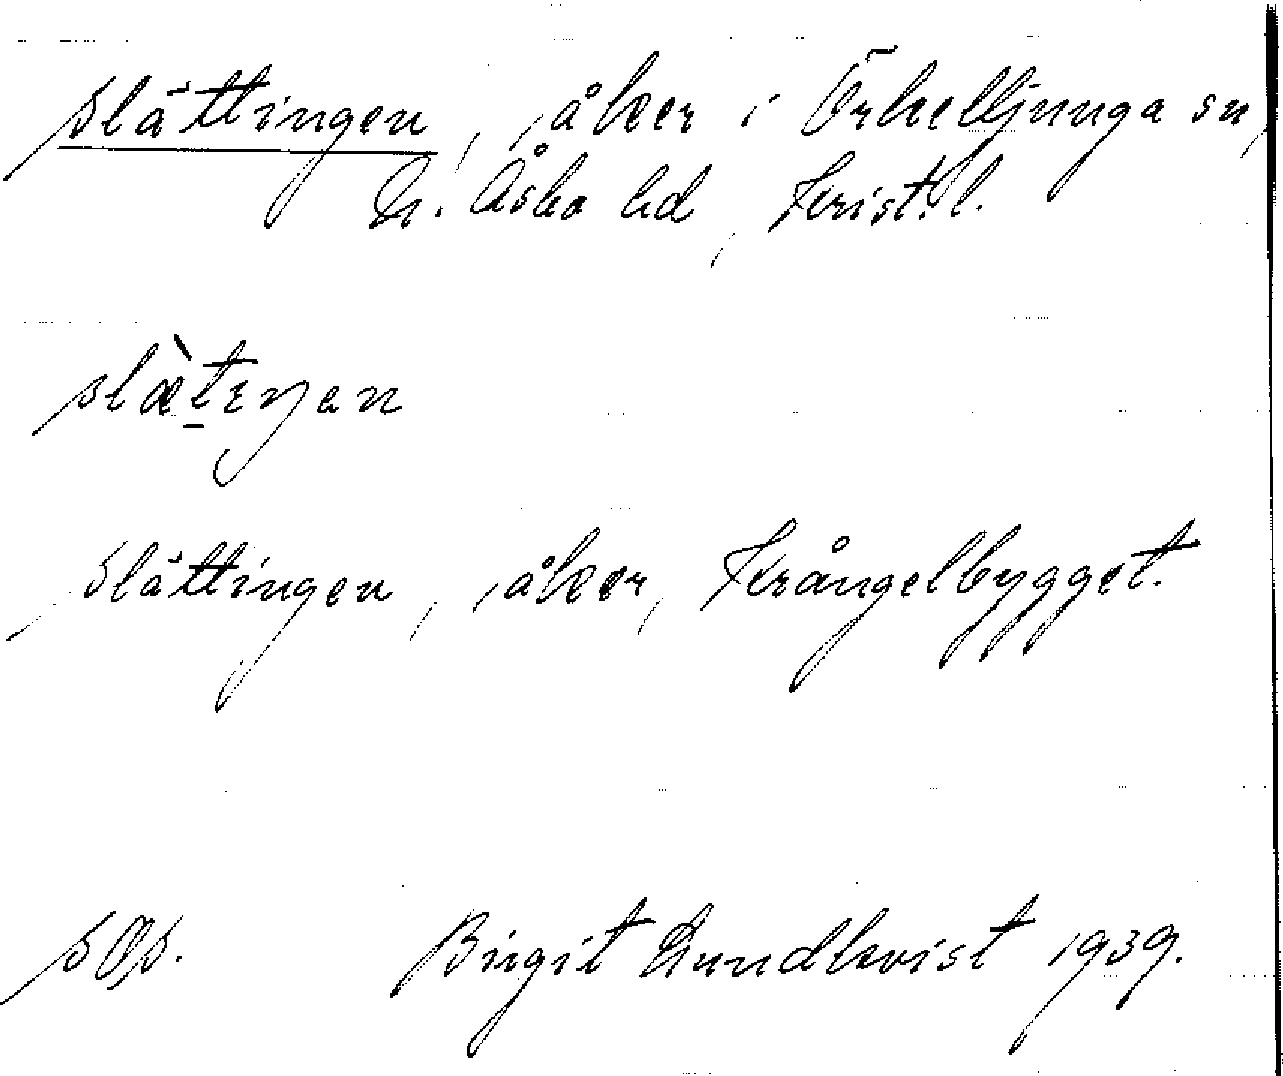 Slättingen, åker i Örkelljunga sn,
N. Åsbo hd, Krist. l.
slæ̀t̲ıŋan
Slättingen, åker, Krångelbygget.
SOS. Birgit Lundkvist 1939.